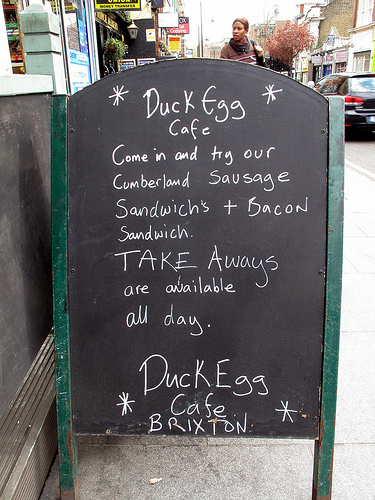 UNION
MONEY TRANSFER
* Duck Egg *
Cafe
Come in and try our
Cumberland Sausage
Sandwich's + Bacon
Sandwich.
TAKE Aways
are available
all day.
Duck Egg
* Cafe *
BRIXTON